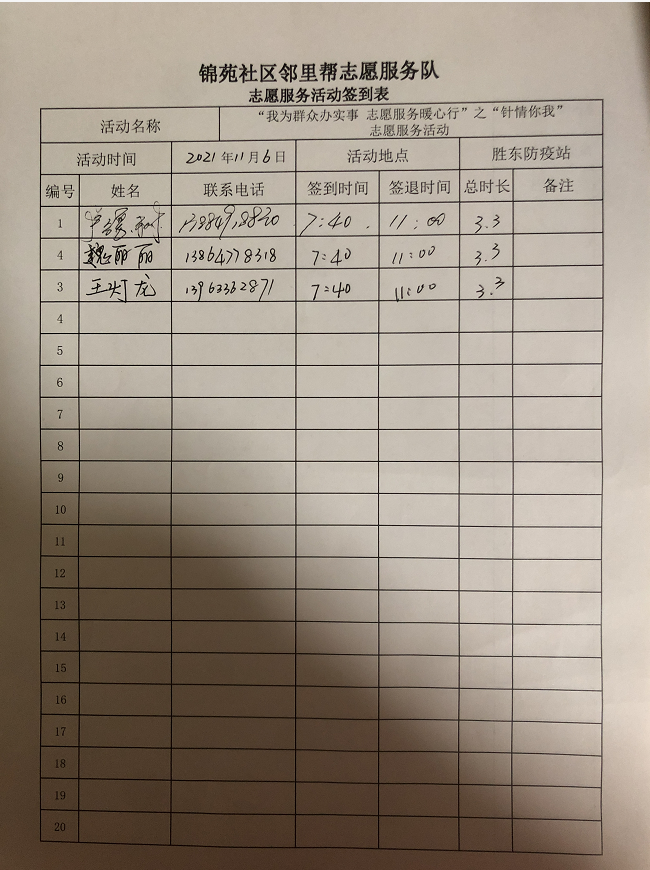 锦苑社区邻里帮志愿服务队
志愿服务活动签到表
活动名称 “我为群众办实事 志愿服务暖心行”之“针情你我”
志愿服务活动
活动时间 2021年11月6日 活动地点 胜东防疫站
编号 姓名 联系电话 签到时间 签退时间 总时长 备注
1 7:40. 11:00 3.3
4 魏丽丽 13864778318 7:40 11:00 3.3
3 王灯龙 13963362871 7:40 11:00 3.3
4
5
6
7
8
9
10
11
12
13
14
15
16
17
18
19
20